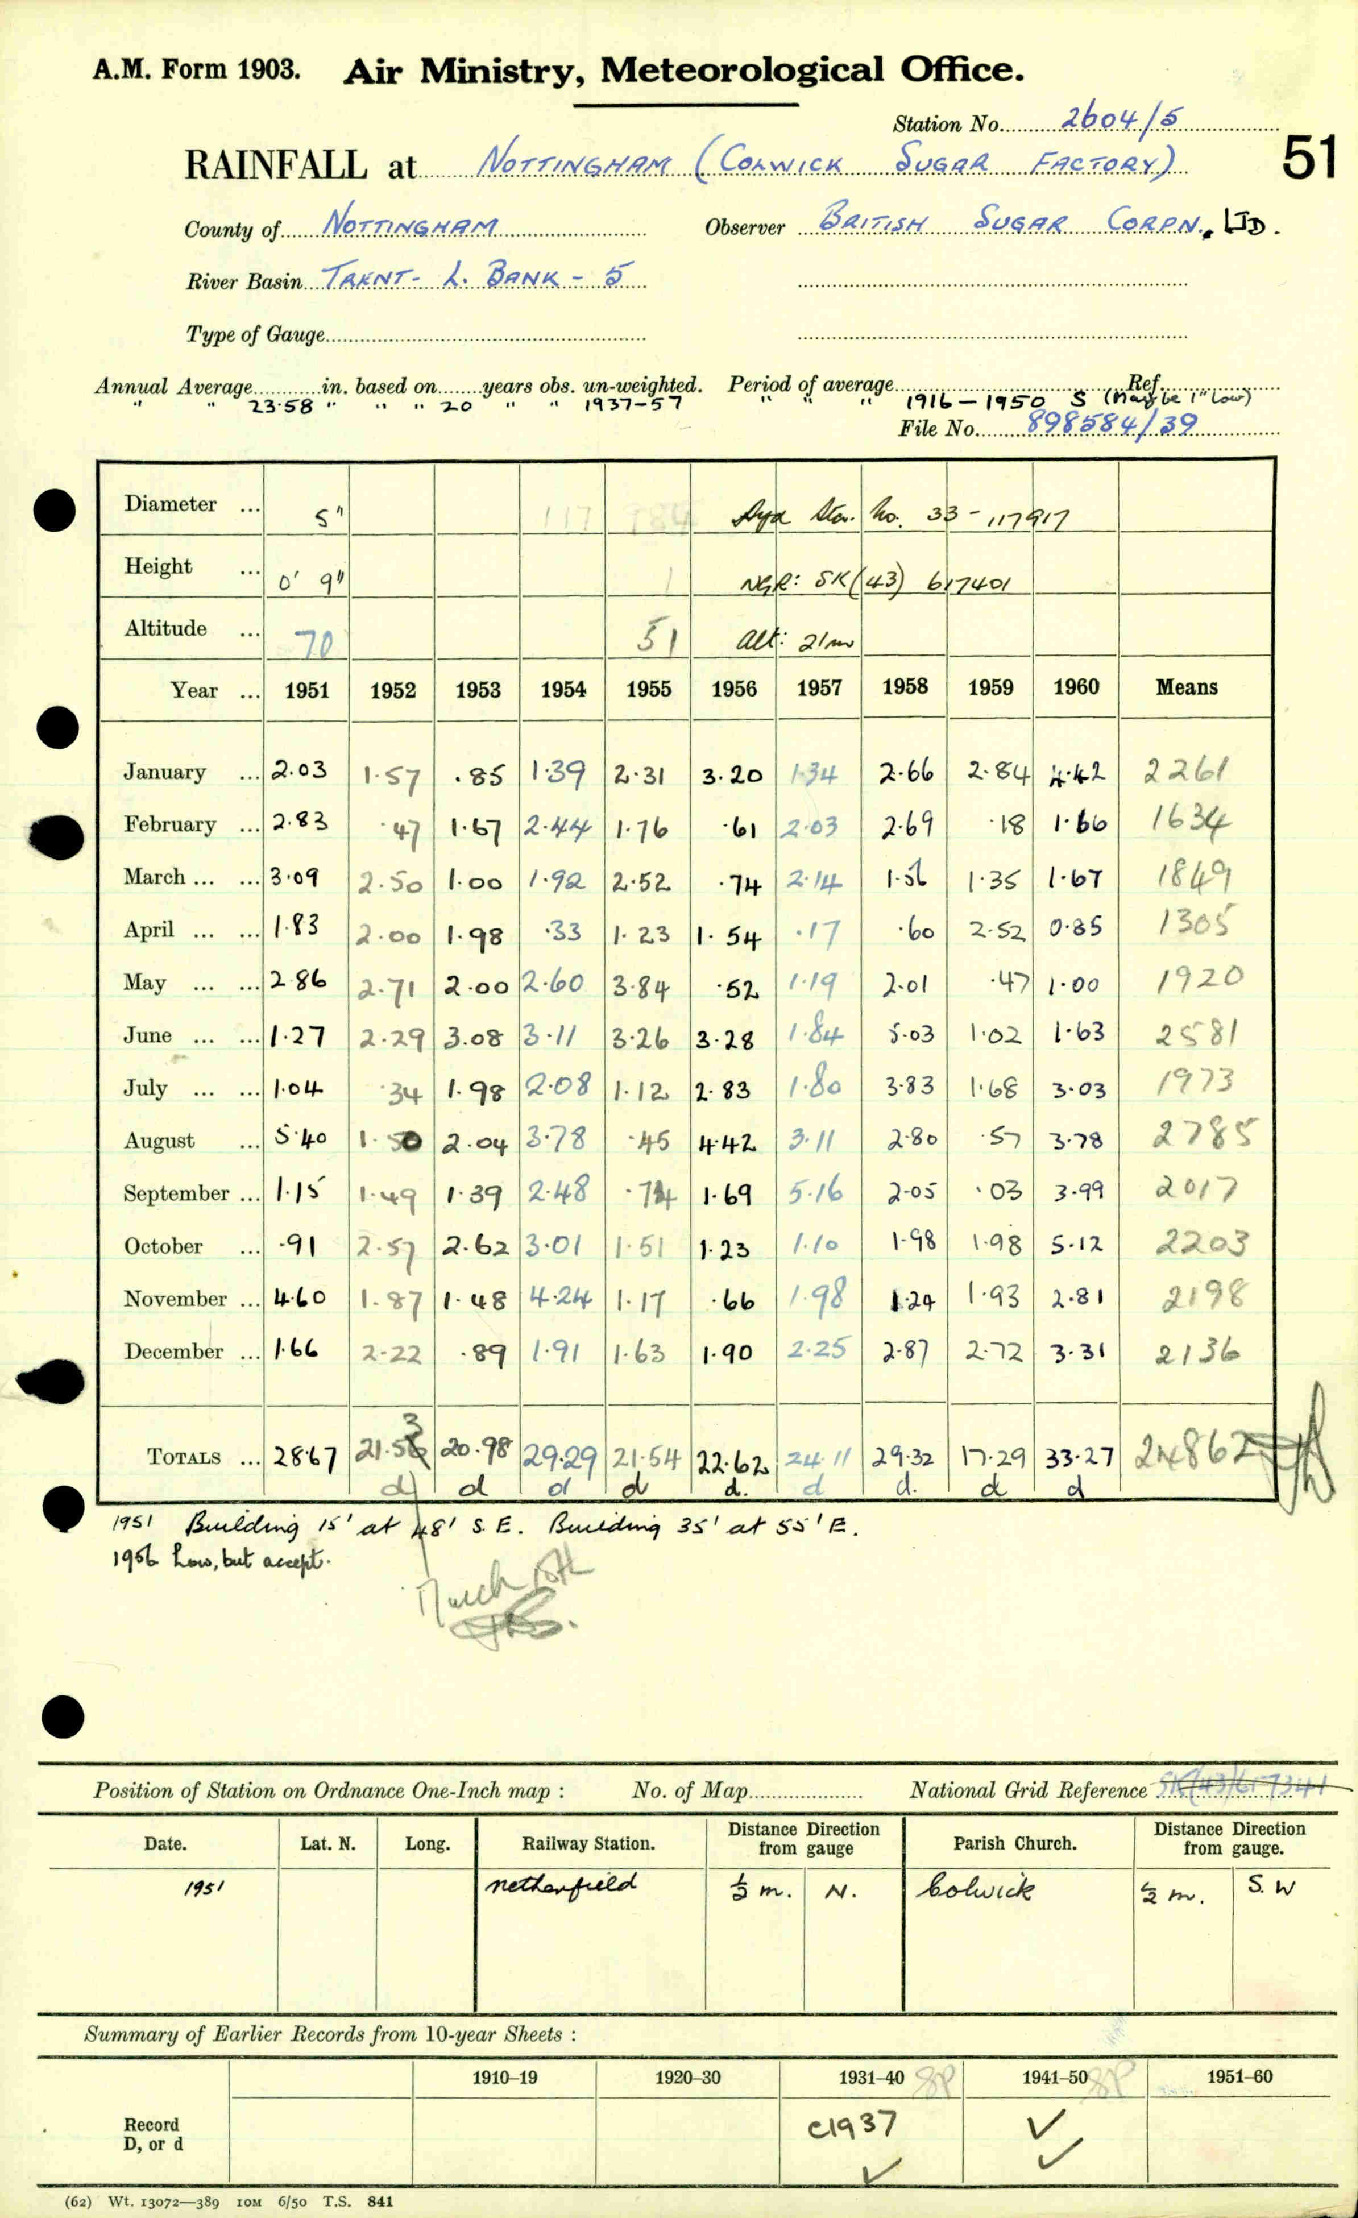 A.M. Form 1903. Air Ministry, Meteorological Office.
Station No. 2604/5
RAINFALL at NOTTINGHAM (COLWICK SUGAR FACTORY) 51
County of NOTTINGHAM Observer BRITISH SUGAR CORPN., LTD.
River Basin TRENT - L. BANK - 5
Type of Gauge
Annual Average in. based on years obs. un-weighted. Period of average Ref.
" " 23.58 " " " 20 " " 1937-57 " " " 1916-1950 S (Maybe 1" low)
File No. 898584/39
Diameter ... 5" 117 984 Stn. No. 33-117917
Height ... 0' 9" 1 NGR: SK(43) 617401
Altitude ... 70 51 Alt: 21m
Year ... 1951 1952 1953 1954 1955 1956 1957 1958 1959 1960 Means
January ... 2.03 1.57 .85 1.39 2.31 3.20 1.34 2.66 2.84 4.42 2261
February ... 2.83 .47 1.67 2.44 1.76 .61 2.03 2.69 .18 1.66 1634
March ... ... 3.09 2.50 1.00 1.92 2.52 .74 2.14 1.56 1.35 1.67 1849
April ... ... 1.83 2.00 1.98 .33 1.23 1.54 .17 .60 2.52 0.85 1305
May ... ... 2.86 2.71 2.00 2.60 3.84 .52 1.19 2.01 .47 1.00 1920
June ... ... 1.27 2.29 3.08 3.11 3.26 3.28 1.84 5.03 1.02 1.63 2581
July ... ... 1.04 .34 1.98 2.08 1.12 2.83 1.80 3.83 1.68 3.03 1973
August ... 5.40 1.50 2.04 3.78 .45 4.42 3.11 2.80 .57 3.78 2785
September ... 1.15 1.49 1.39 2.48 .74 1.69 5.16 2.05 .03 3.99 2017
October ... .91 2.57 2.62 3.01 1.51 1.23 1.10 1.98 1.98 5.12 2203
November ... 4.60 1.87 1.48 4.24 1.17 .66 1.98 1.24 1.93 2.81 2198
December ... 1.66 2.22 .89 1.91 1.63 1.90 2.25 2.87 2.72 3.31 2136
TOTALS ... 28.67 21.53 20.98 29.29 21.54 22.62 24.11 29.32 17.29 33.27 24862
d d d d d. d d. d d
1951 Building 15' at 48' S.E. Building 35' at 55' E.
1956 Low, but accept.
March
Position of Station on Ordnance One-Inch map : No. of Map National Grid Reference SK(43)617341
Date. Lat. N. Long. Railway Station. Distance from Direction gauge Parish Church. Distance from Direction gauge.
1951 Netherfield ½ m. N. Colwick ½ m. S.W
Summary of Earlier Records from 10-year Sheets :
1910–19 1920–30 1931–40 SP 1941–50 SP 1951–60
Record D, or d c1937 ✓ ✓ ✓
(62) Wt. 13072—389 10M 6/50 T.S. 841